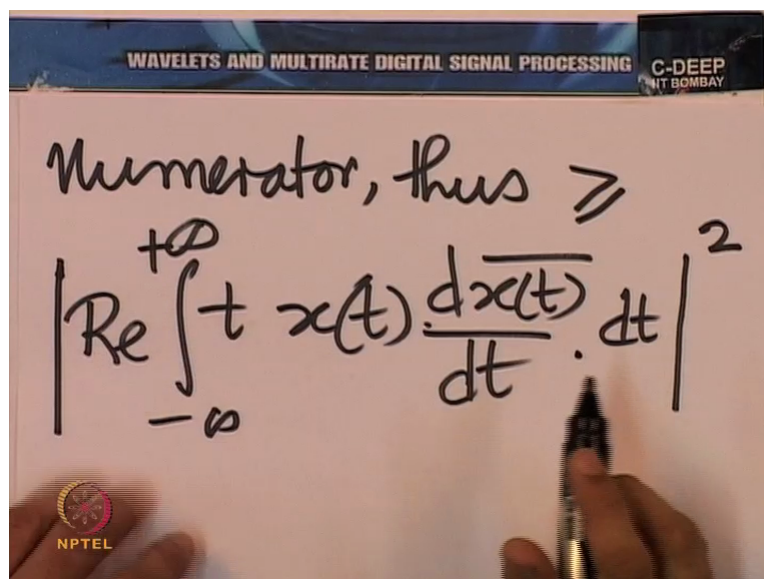 WAVELETS AND MULTIRATE DIGITAL SIGNAL PROCESSING
C-DEEP
IIT BOMBAY
Numerator, thus ≥
| Re ∫_{-∞}^{+∞} t x(t) · \frac{d\overline{x(t)}}{dt} · dt |^2
NPTEL